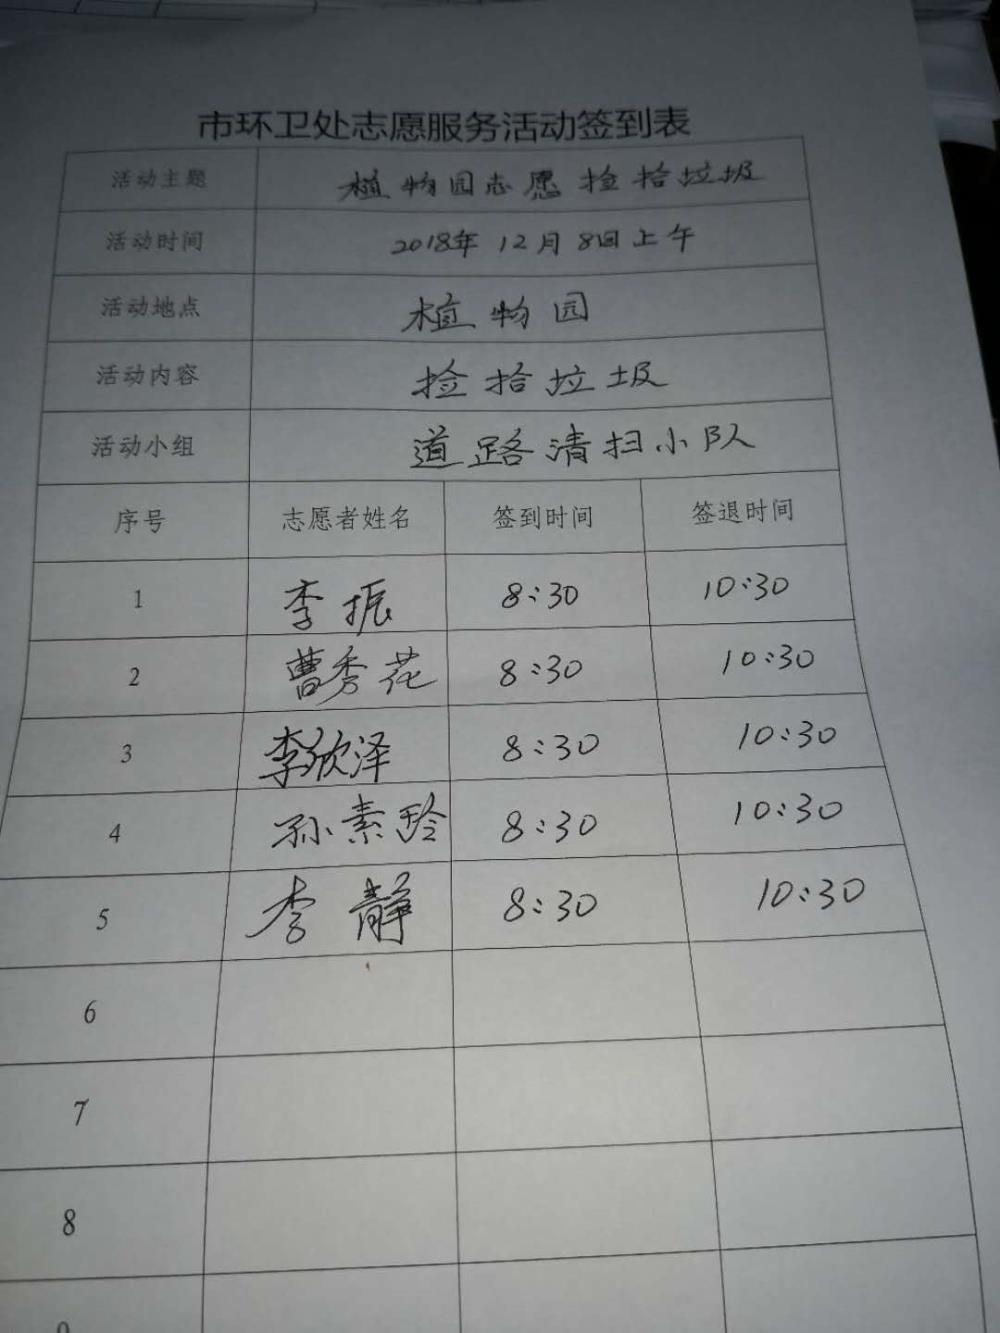 市环卫处志愿服务活动签到表
活动主题 植物园志愿捡拾垃圾
活动时间 2018年12月8日上午
活动地点 植物园
活动内容 捡拾垃圾
活动小组 道路清扫小队
序号 志愿者姓名 签到时间 签退时间
1 李振 8:30 10:30
2 曹秀花 8:30 10:30
3 李欣泽 8:30 10:30
4 孙素玲 8:30 10:30
5 李静 8:30 10:30
6
7
8